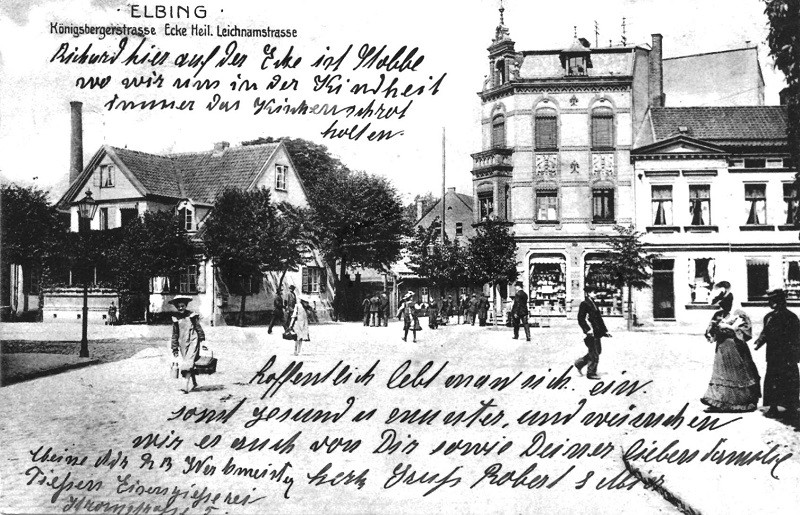 · ELBING ·
Königsbergerstrasse Ecke Heil. Leichnamstrasse
Richard hier auf der Ecke ist Stobbe
wo wir uns in der Kindheit
immer das Kuchenschrot
holten.
hoffentlich lebt man sich ein.
sonst gesund u munter, und wünschen
wir es auch von Dir sowie Deiner lieben Familie
herz Gruß Robert
Meine Adr Werkmeister
Eisengießerei